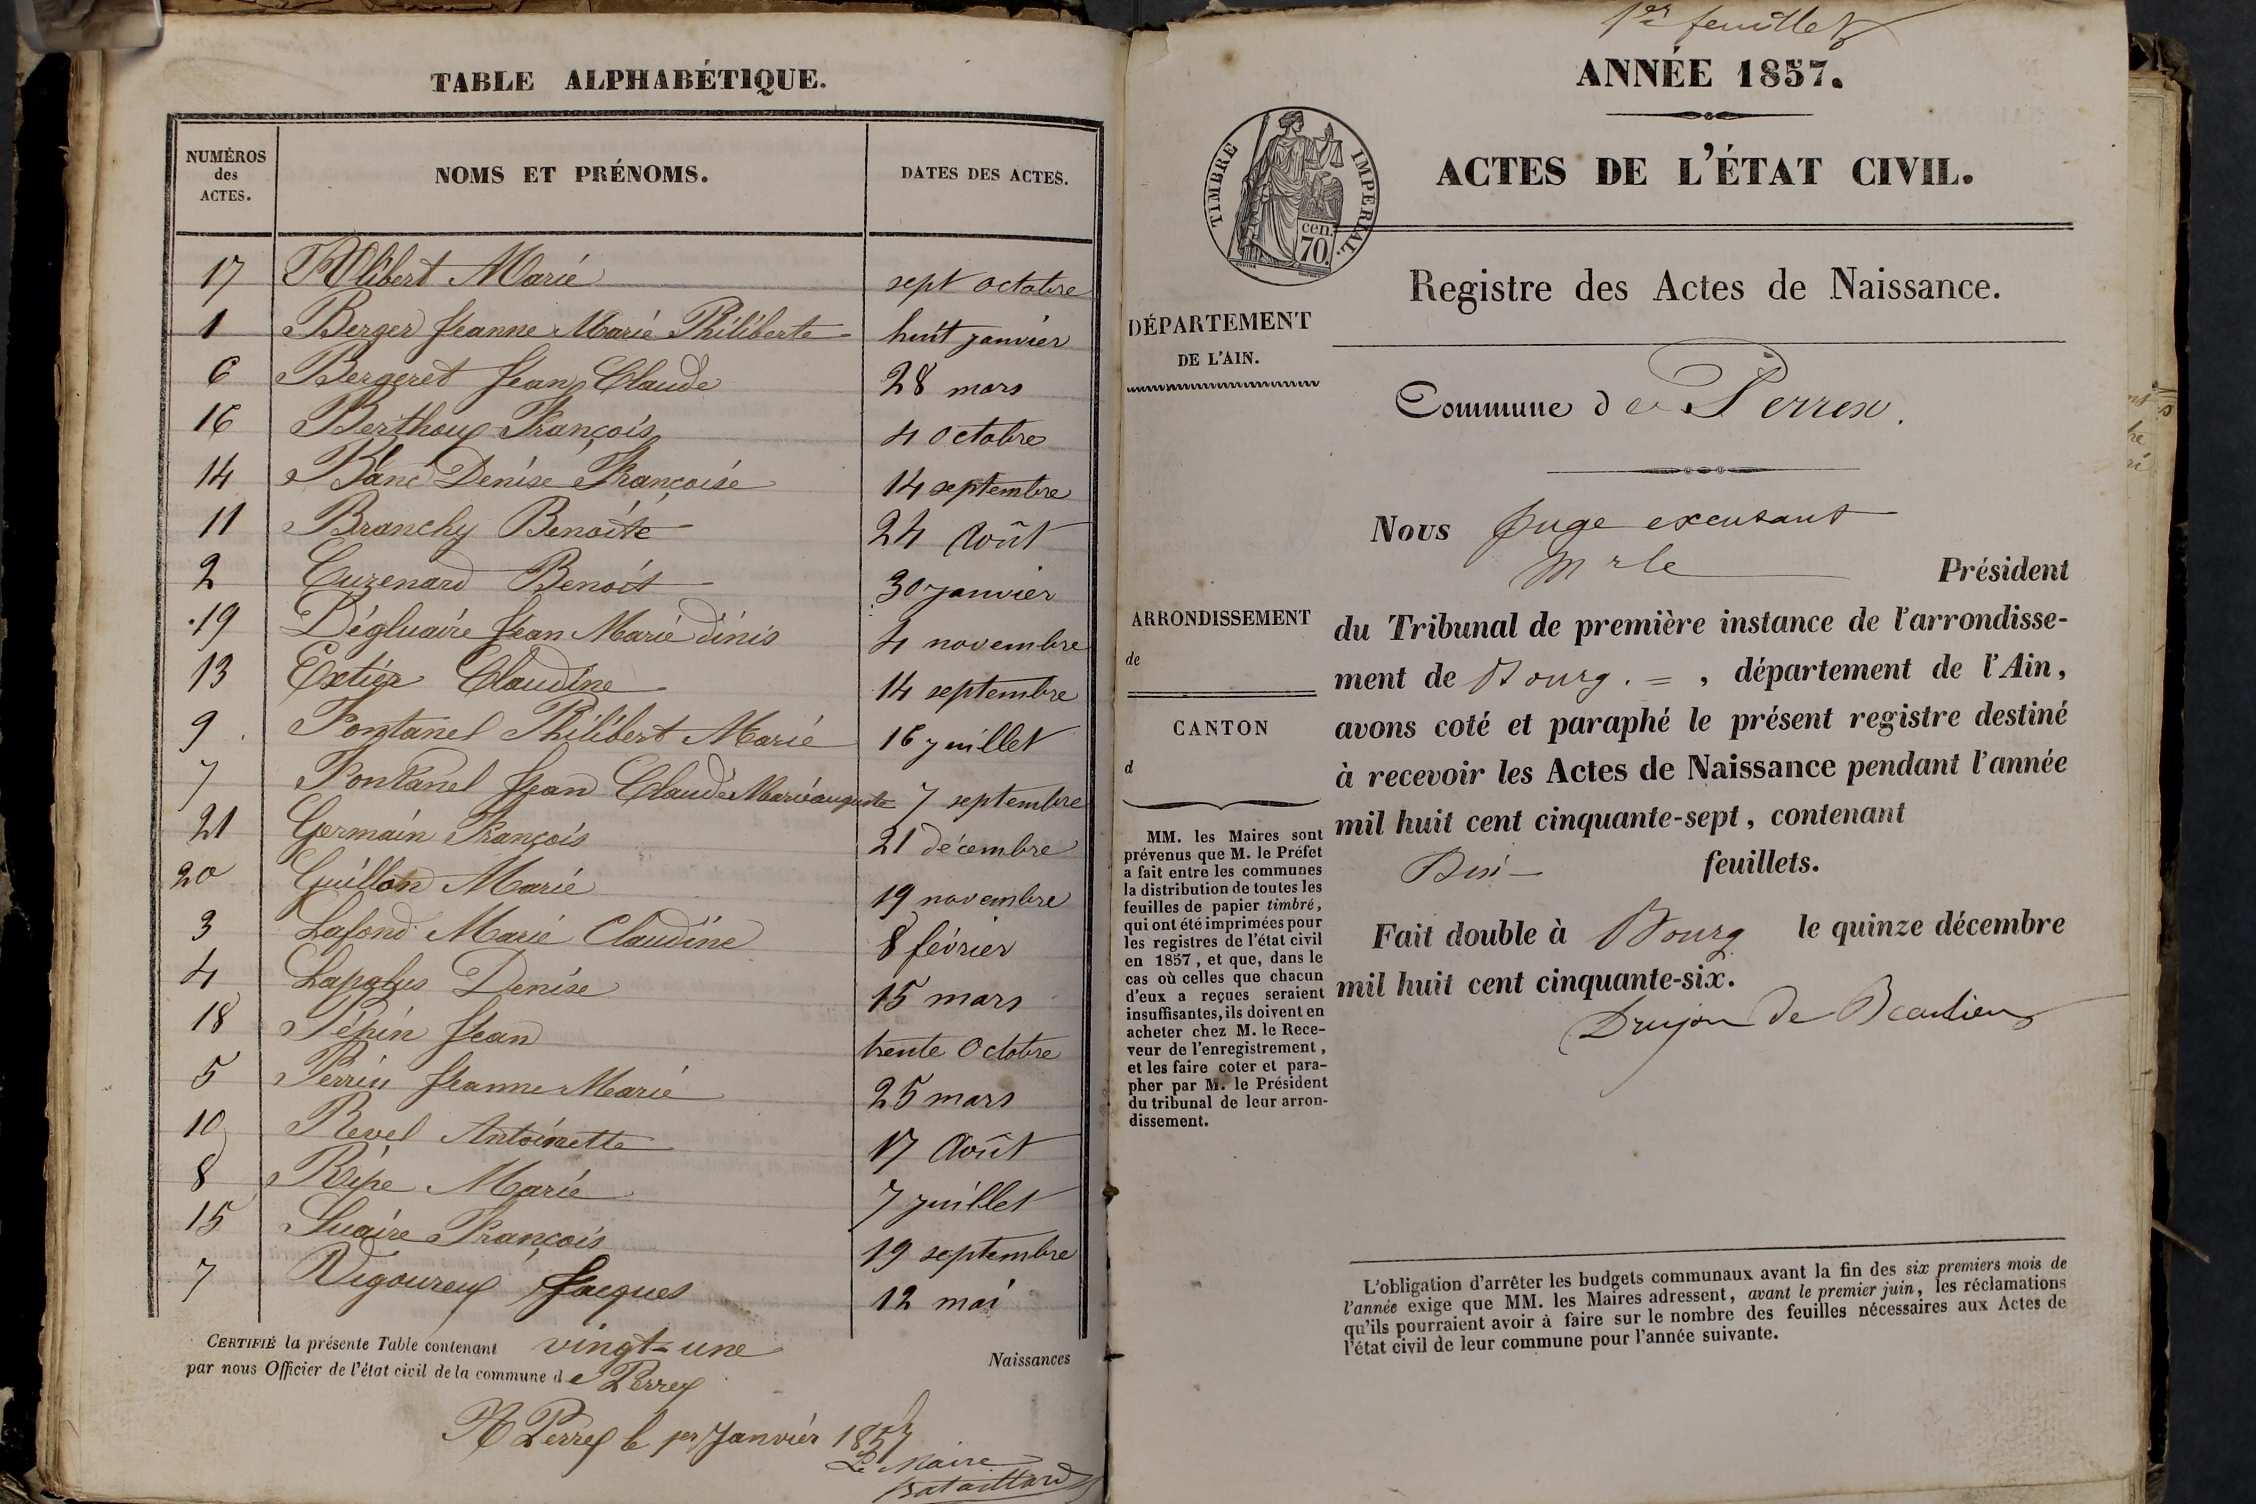 TABLE ALPHABÉTIQUE.
NUMÉROS des ACTES.
NOMS ET PRÉNOMS.
DATES DES ACTES.
17 Alibert Marie sept octobre
1 Berger Jeanne Marie Philiberte huit janvier
6 Bergeret Jean Claude 28 mars
16 Berthoux François 4 octobre
14 Blanc Denise Françoise 14 septembre
11 Branchy Benoite 24 Août
2 Cuzenard Benoit 30 janvier
19 Dégluaire Jean Marie dinis 4 novembre
13 Extier Claudine 14 septembre
9 Fontanel Philibert Marie 16 juillet
7 Fontanel Jean Claude Marie auguste 7 septembre
21 Germain François 21 décembre
20 Guillon Marie 19 novembre
3 Lafond Marie Claudine 8 février
4 Lapalus Denise 15 mars
18 Pépin Jean trente Octobre
5 Perrin Jeanne Marie 25 mars
10 Revel Antoinette 17 Août
8 Ripe Marie 7 juillet
15 Suaire François 19 septembre
7 Vigoureux Jacques 12 mai
CERTIFIÉ la présente Table contenant vingt-une Naissances
par nous Officier de l'état civil de la commune de Perrex
A Perrex le 1er Janvier 1857
Le Maire
Bataillard
1er feuillet
ANNÉE 1857.
TIMBRE IMPERIAL.
cen. 70.
ACTES DE L'ÉTAT CIVIL.
Registre des Actes de Naissance.
DÉPARTEMENT
DE L'AIN.
Commune de Perrex.
Nous Juge excusant
Mr le Président
ARRONDISSEMENT
de
du Tribunal de première instance de l'arrondisse-
ment de Bourg. = , département de l'Ain,
CANTON
d
avons coté et paraphé le présent registre destiné
à recevoir les Actes de Naissance pendant l'année
mil huit cent cinquante-sept, contenant
feuillets.
Fait double à Bourg le quinze décembre
mil huit cent cinquante-six.
Drujon de Beaulieu
MM. les Maires sont
prévenus que M. le Préfet
a fait entre les communes
la distribution de toutes les
feuilles de papier timbré,
qui ont été imprimées pour
les registres de l'état civil
en 1857, et que, dans le
cas où celles que chacun
d'eux a reçues seraient
insuffisantes, ils doivent en
acheter chez M. le Rece-
veur de l'enregistrement,
et les faire coter et para-
pher par M. le Président
du tribunal de leur arron-
dissement.
L'obligation d'arrêter les budgets communaux avant la fin des six premiers mois de
l'année exige que MM. les Maires adressent, avant le premier juin, les réclamations
qu'ils pourraient avoir à faire sur le nombre des feuilles nécessaires aux Actes de
l'état civil de leur commune pour l'année suivante.